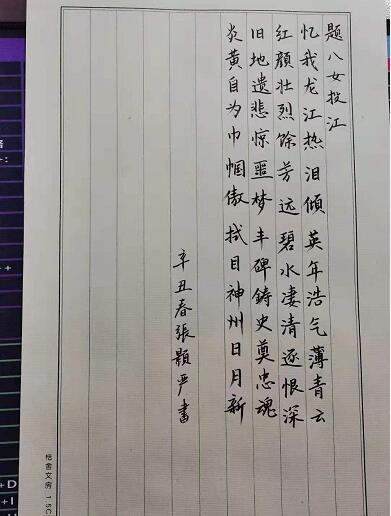 题八女投江
忆我龙江热泪倾英年浩气薄青云
红颜壮烈馀芳远碧水凄清逐恨深
旧地遗悲惊噩梦丰碑鑄史奠忠魂
炎黄自为巾帼傲拭目神州日月新
辛丑春張顥严書
梧舍文房 1.5C
+D
+I